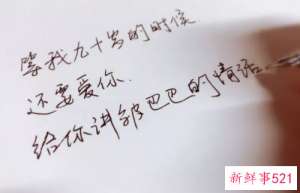 等我九十岁的时候
还要爱你.
给你讲皱巴巴的情话.
新鲜事521